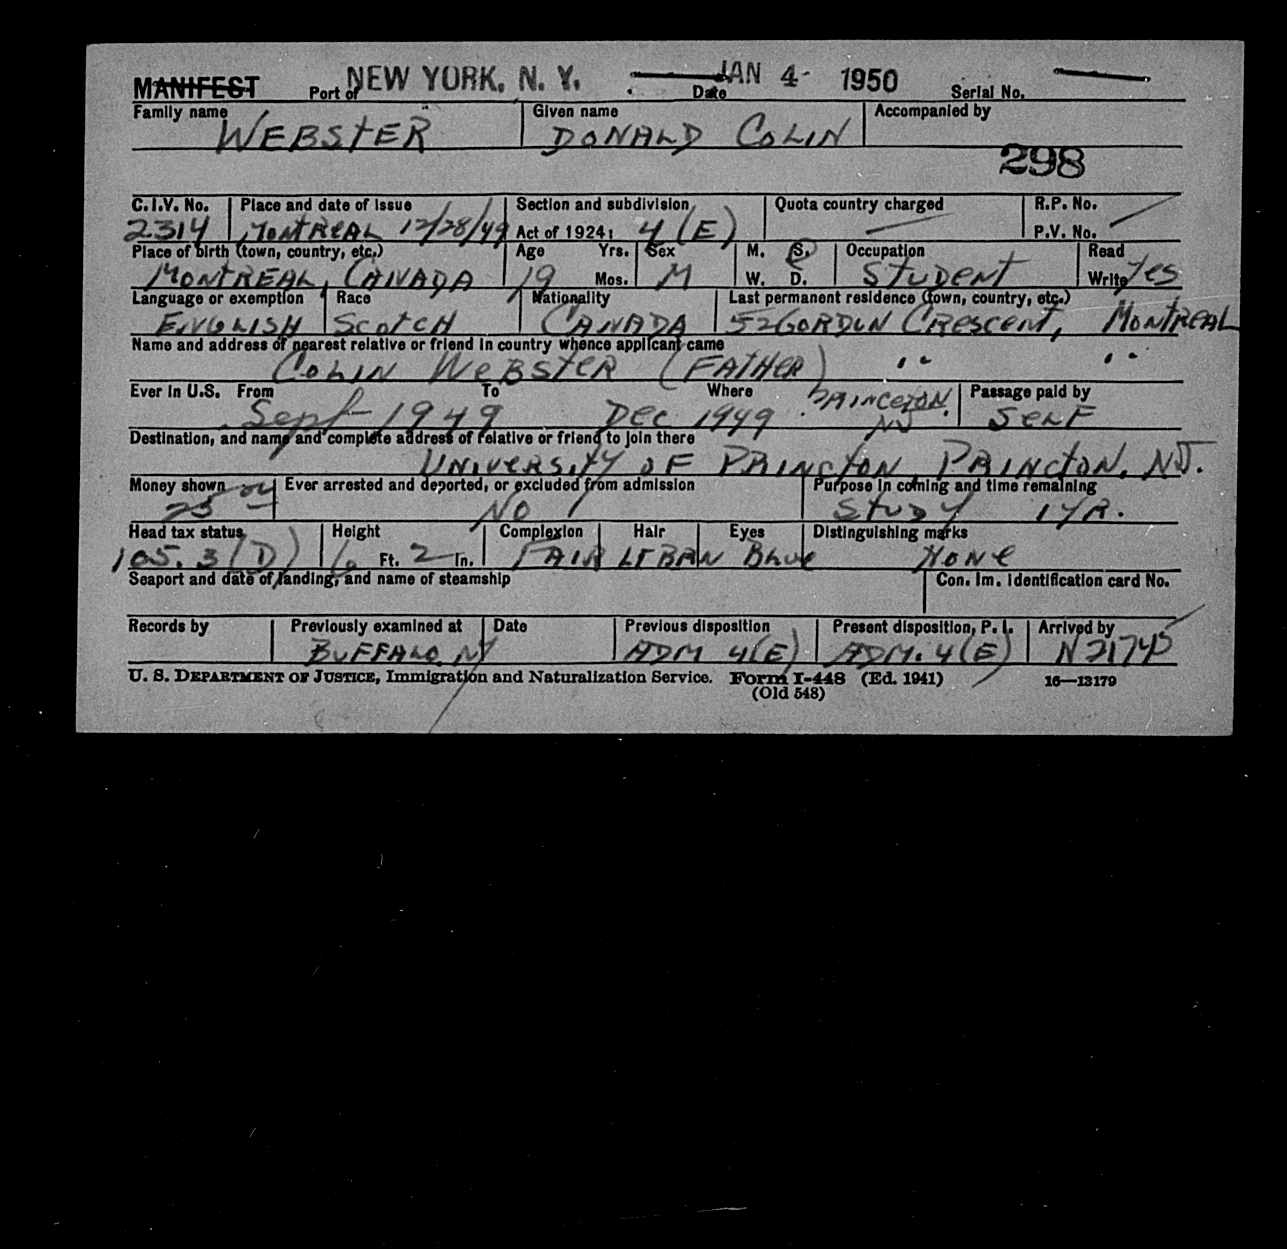 MANIFEST Port of NEW YORK, N. Y. Date JAN 4- 1950 Serial No.
Family name WEBSTER Given name DONALD COLIN Accompanied by
298
C.I.V. No. Place and date of issue Section and subdivision, Quota country charged R.P. No.
2314 MONTREAL 12/28/49 Act of 1924: 4 (E) P.V. No.
Place of birth (town, country, etc.) Age Yrs. Sex M. S. Occupation Read
MONTREAL, CANADA 19 Mos. M W. D. STUDENT Write Yes
Language or exemption Race Nationality Last permanent residence (town, country, etc.)
ENGLISH SCOTCH CANADA 52 GORDON CRESCENT, MONTREAL
Name and address of nearest relative or friend in country whence applicant came
COLIN WEBSTER (FATHER) " "
Ever in U.S. From To Where PRINCETON. Passage paid by
Sept 1949 DEC 1949 NJ SELF
Destination, and name and complete address of relative or friend to join there
UNIVERSITY OF PRINCTON, PRINCTON, NJ.
Money shown Ever arrested and deported, or excluded from admission Purpose in coming and time remaining
25 NO STUDY 1 YR.
Head tax status Height Complexion Hair Eyes Distinguishing marks
105.3 (D) 6 Ft. 2 In. FAIR LTBRN Blue NONE
Seaport and date of landing, and name of steamship Con. Im. Identification card No.
Records by Previously examined at Date Previous disposition Present disposition, P. I. Arrived by
BUFFALO NY ADM 4(E) ADM. 4(E) N21745
U. S. DEPARTMENT OF JUSTICE, Immigration and Naturalization Service. Form I-448 (Ed. 1941) 16—13179
(Old 548)